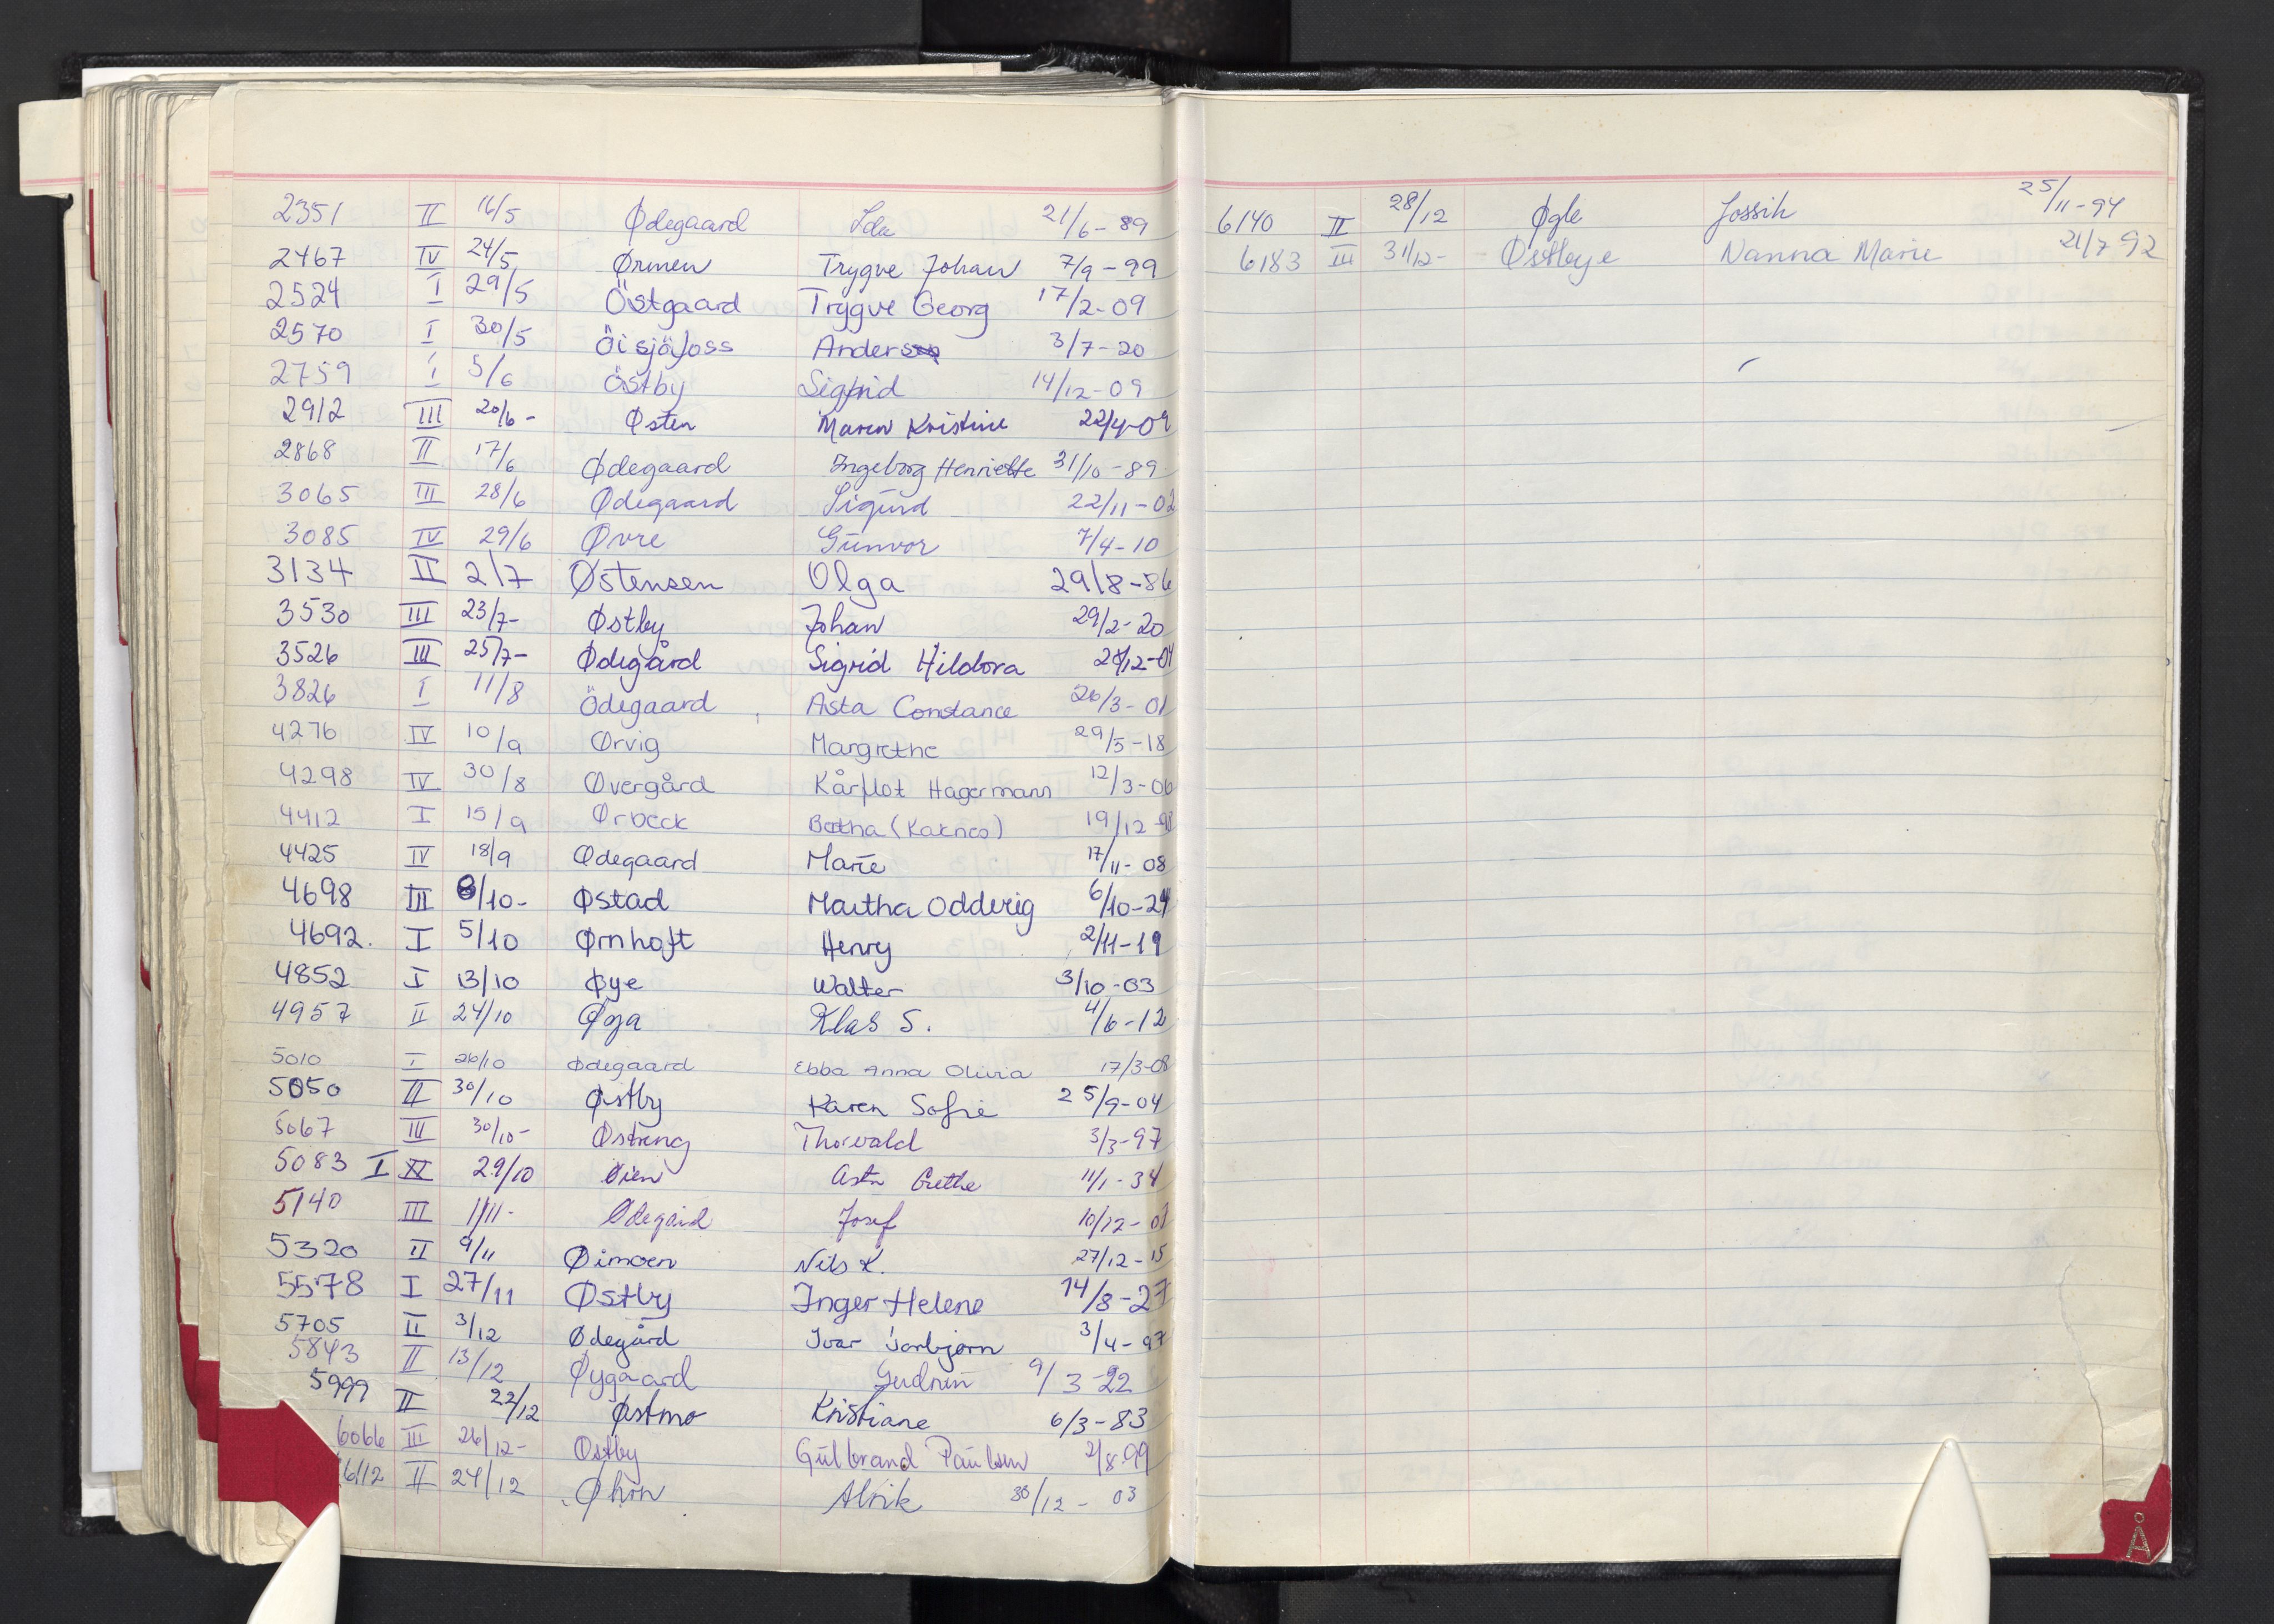 2351 II 16/5 Ødegaard Ida 21/6-89
2467 IV 24/5 Ørmen Trygve Johan 7/9-99
2524 I 29/5 Östgaard Trygve Georg 17/2-09
2570 I 30/5 Öisjöfoss Anders 3/7-20
2759 I 5/6 Östby Sigfrid 14/12-09
2912 III 20/6- Østen Maren Kristine 22/4-09
2868 II 17/6 Ødegaard Ingeborg Henriette 31/10-89
3065 III 28/6 Ødegaard Sigurd 22/11-02
3085 IV 29/6 Øvre Gunvor 7/4-10
3134 II 2/7 Østensen Olga 29/8-86
3530 III 23/7- Østby Johan 29/2-20
3526 III 25/7- Ødegård Sigrid Hildora
3826 I 11/8 Ödegaard Asta Constance 26/3-01
4276 IV 10/9 Ørvig Margrethe 29/5-18
4298 IV 30/8 Øvergård Kårflot Hagermann 12/3-06
4412 I 15/9 Ørbeck 19/12
4425 IV 18/9 Ødegaard Marie 17/11-08
4698 III 8/10- Østad Martha Odderig 6/10-24
4692. I 5/10 Ørnhoft Henry 2/11-19
4852 I 13/10 Øye Walter 3/10-03
4957 II 24/10 Øya Klas S. 4/6-12
5010 I 26/10 Ødegaard Ebba Anna Olivia 17/3-08
5050 II 30/10 Østby Karen Sofie 25/9-04
5067 III 30/10- Østreng Thorvald 3/3-97
5083 I 29/10 Øien Asta Grethe 11/1-34
5140 III 1/11- Ødegård Josef 10/12-
5320 II 9/11 Øimoen Nils K. 27/12-15
5578 I 27/11 Østby Inger Helene 14/8-27
5705 II 3/12 Ødegård Ivar Torbjørn 3/4-97
5843 II 13/12 Øygaard Gudrun 9/3-22
5999 II 22/12 Østmo Kristiane 6/3-83
6066 III 26/12- Østby Gulbrand Paulsen 2/8-99
6112 II 24/12 Øhrn Alrik 30/12-03
6140 II 28/12 Øgle Jossik 25/11-94
6183 III 31/12- Østbye Nanna Marie 21/7 92
Å